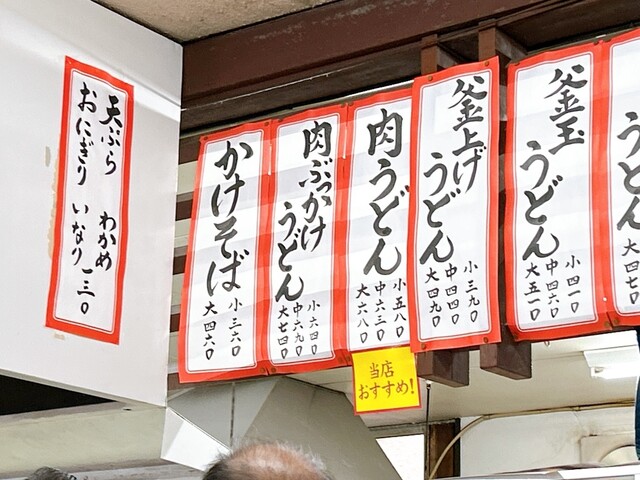 うどん
大四七〇
釜玉
うどん
小四一〇
中四六〇
大五一〇
釜上げ
うどん
小三九〇
中四四〇
大四九〇
肉うどん
小五八〇
中六三〇
大六八〇
当店
おすすめ!
肉ぶっかけ
うどん
小六四〇
中六九〇
大七四〇
かけそば
小三六〇
大四六〇
天ぷら わかめ
おにぎり いなり
一三〇